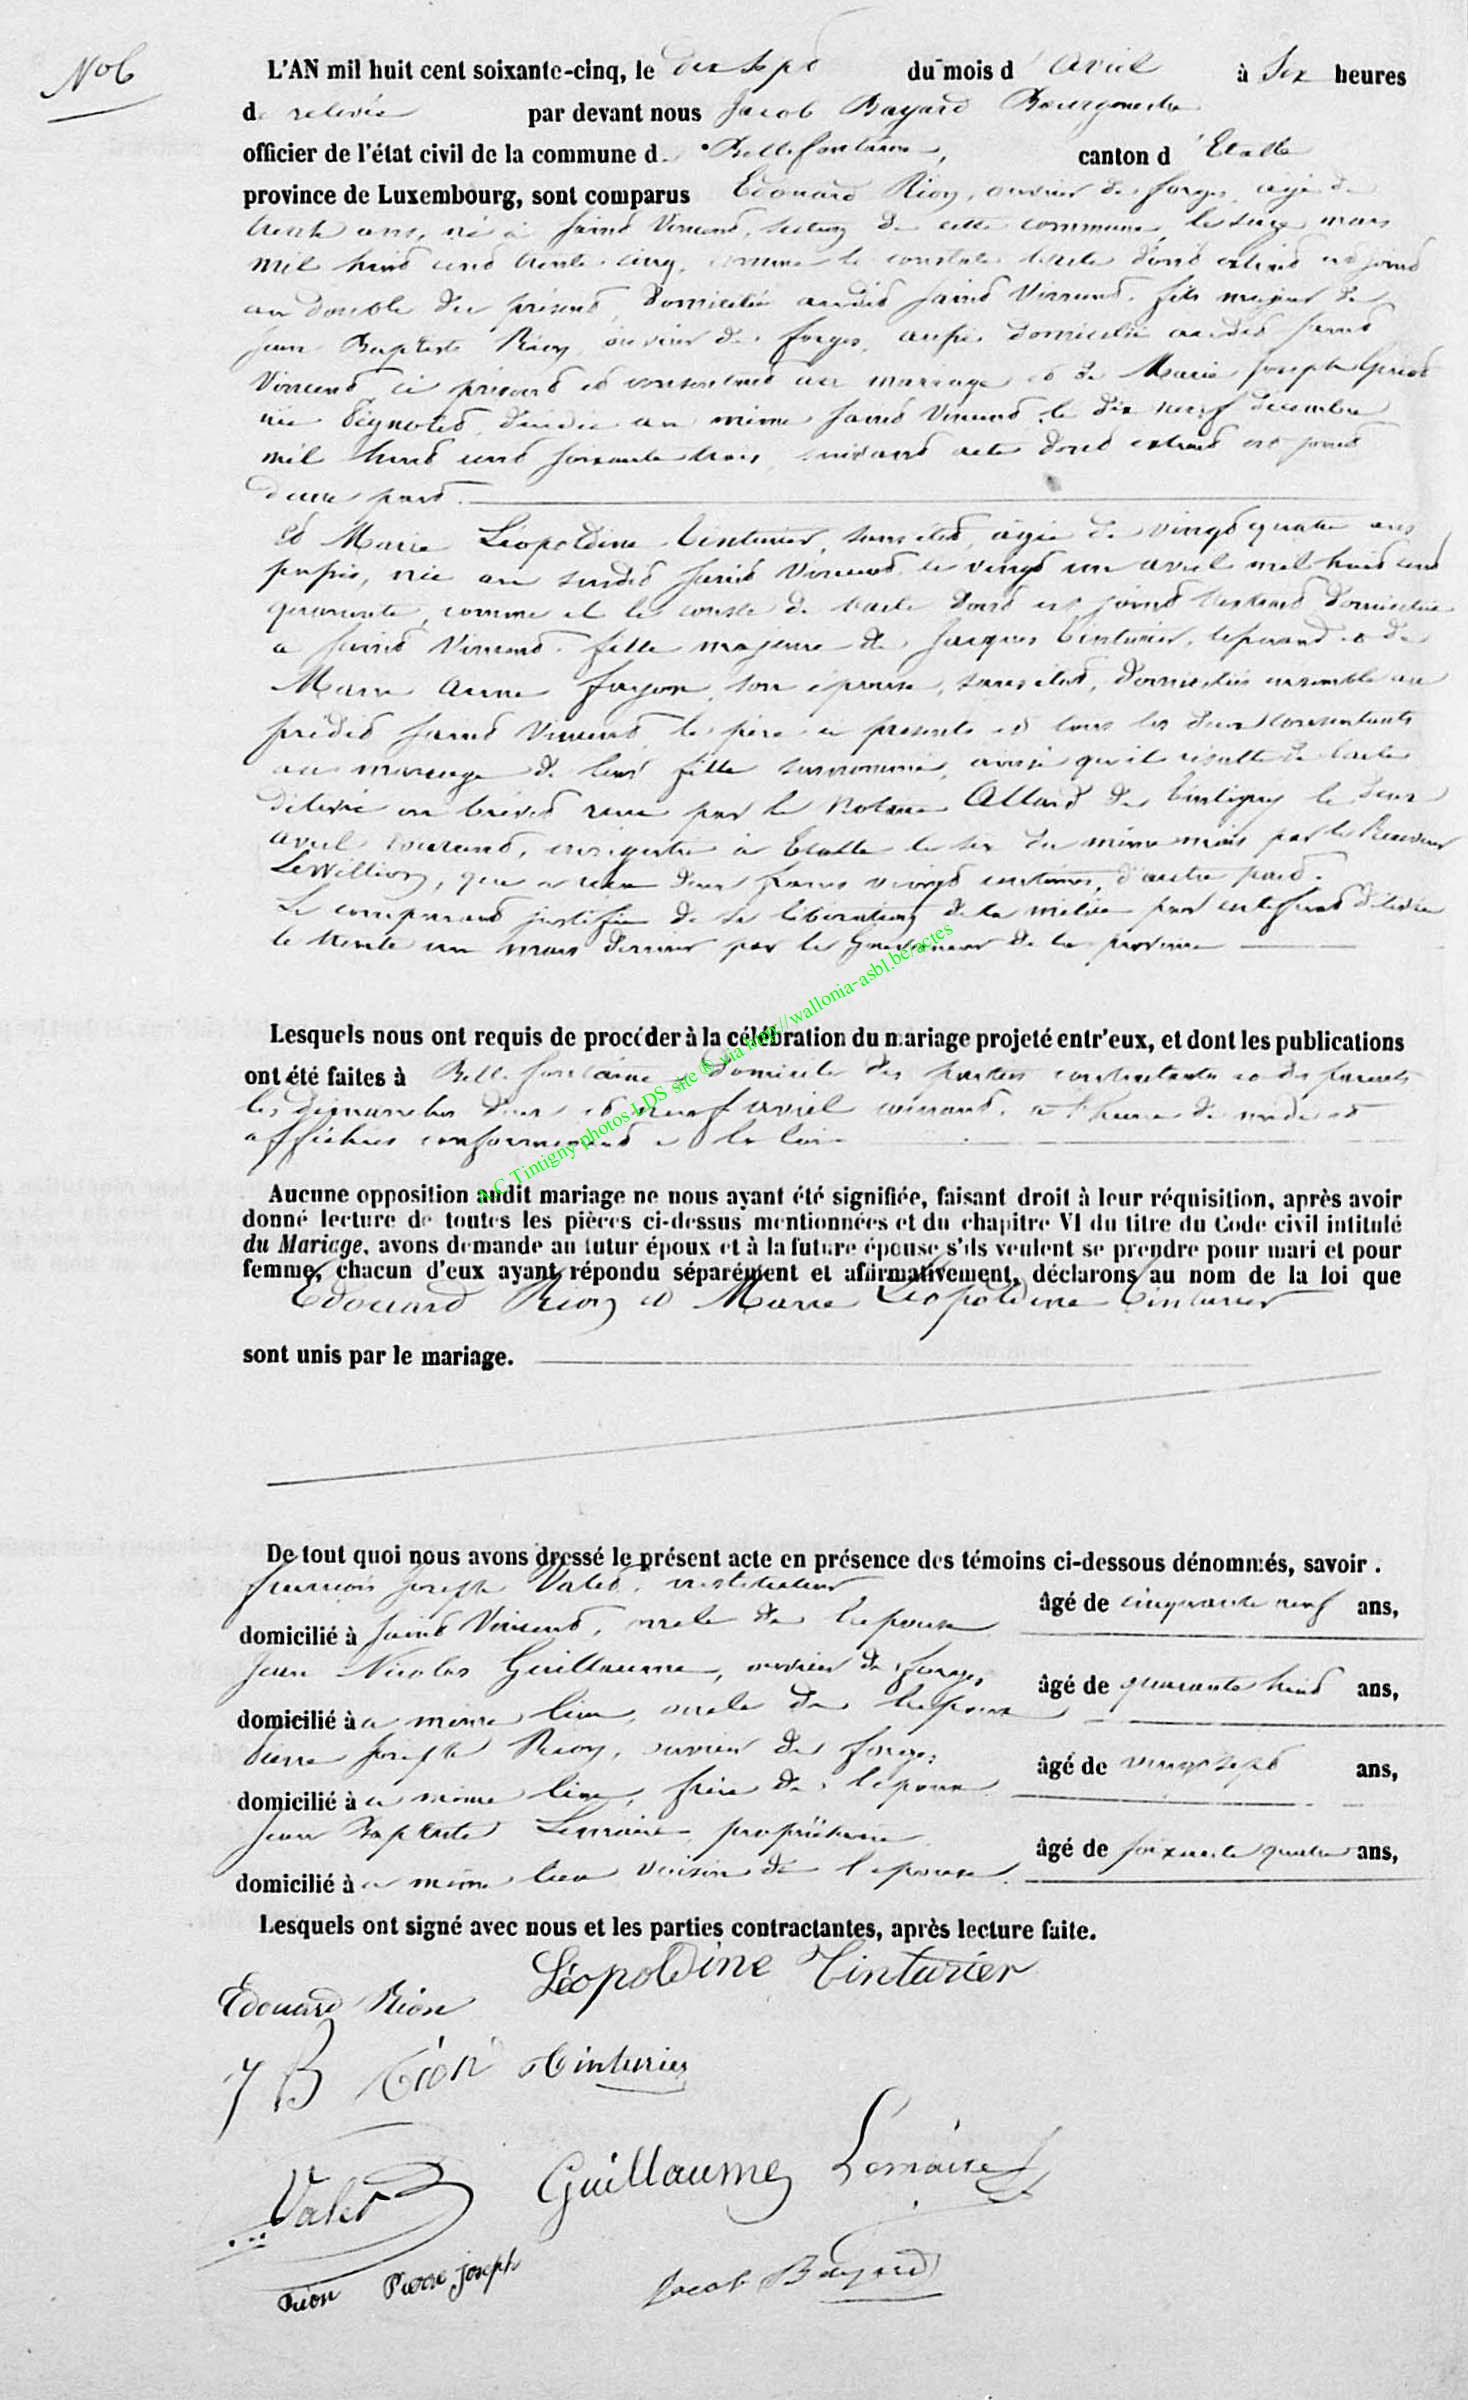 No 6
L'AN mil huit cent soixante-cinq, le dix sept du mois d'avril à six heures
de relevée par devant nous Jacob Bayard Bourgmestre
officier de l'état civil de la commune de Bellefontaine, canton d'Etalle
province de Luxembourg, sont comparus Edouard Rion, ouvrier de forges, agé de
trente ans, né à Saint Vincent, section de cette commune, le seize mars
mil huit cent trente cinq, comme le constate l'acte dont extrait est joint
au double du présent, domicilié audit Saint Vincent, fils majeur de
Jean Baptiste Rion, ouvrier de forges, aussi domicilié audit Saint
Vincent ci présent et consentant au mariage et de Marie Joseph
décédée au même Saint Vincent, le dix neuf décembre
mil huit cent soixante trois, suivant acte dont extrait est joint
d'une part.
et Marie Léopoldine Tinturier, sans état, agée de vingt quatre ans
passés, née au susdit Saint Vincent le vingt un avril mil huit cent
quarante, comme il le conste de l'acte dont est joint l'extrait, domiciliée
à Saint Vincent, fille majeure de Jacques Tinturier, et de
Marie Anne son épouse, sans état, domiciliés ensemble au
prédit Saint Vincent, le père ci présent et tous les deux consentants
au mariage de leur fille surnommée, ainsi qu'il résulte de l'acte
délivré en brévet reçu par le Notaire Allard de Tintigny le deux
avril courant, enregistré à Etalle le six du même mois par le Receveur
Lewillion, qui a reçu deux francs vingt centimes, d'autre part.
Le comparant justifie de sa libération de la milice par certificat délivré
le trente un mars dernier par le Gouverneur de la province
A.C Tintigny photos LDS site © via http://wallonia-asbl.be/actes
Lesquels nous ont requis de procéder à la célébration du mariage projeté entr'eux, et dont les publications
ont été faites à Bellefontaine domicile des parties contractantes et des parents
les dimanches deux et neuf avril courant, à l'heure de midi et
affichées conformément à la loi
Aucune opposition audit mariage ne nous ayant été signifiée, faisant droit à leur réquisition, après avoir
donné lecture de toutes les pièces ci-dessus mentionnées et du chapitre VI du titre du Code civil intitulé
du Mariage, avons demandé au futur époux et à la future épouse s'ils veulent se prendre pour mari et pour
femme, chacun d'eux ayant répondu séparément et affirmativement, déclarons au nom de la loi que
Edouard Rion et Marie Léopoldine Tinturier
sont unis par le mariage.
De tout quoi nous avons dressé le présent acte en présence des témoins ci-dessous dénommés, savoir.
François Joseph Valet, instituteur âgé de cinquante neuf ans,
domicilié à Saint Vincent, oncle de l'épouse
Jean Nicolas Guillaume, ouvrier de forges âgé de quarante huit ans,
domicilié à a même lieu, oncle de
Pierre Joseph Rion, ouvrier de forges âgé de vingt sept ans,
domicilié à a même lieu, frère de l'époux
Jean Baptiste Lemaire propriétaire âgé de soixante quatre ans,
domicilié à a même lieu voisin de l'épouse
Lesquels ont signé avec nous et les parties contractantes, après lecture faite.
Edouard Rion Léopoldine Tinturier
J B Rion Tinturier
Valet Guillaume Lemaire
Rion Pierre joseph Jacob Bayard